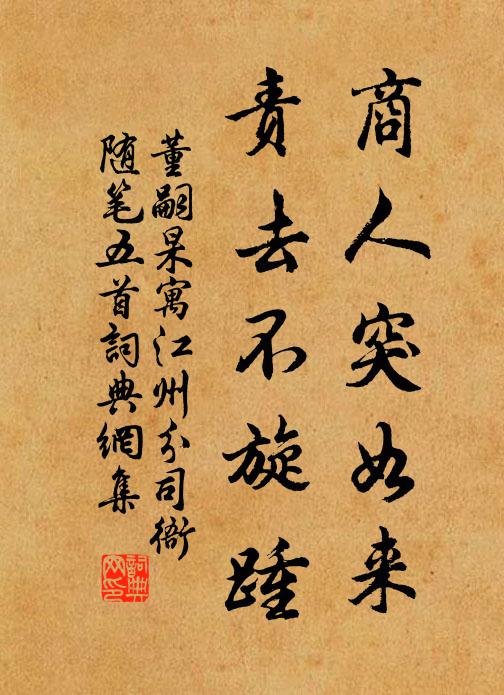 商人突如来
责去不旋踵
董嗣杲寓江州分司衙
随笔五首詞典網集
詞典网印